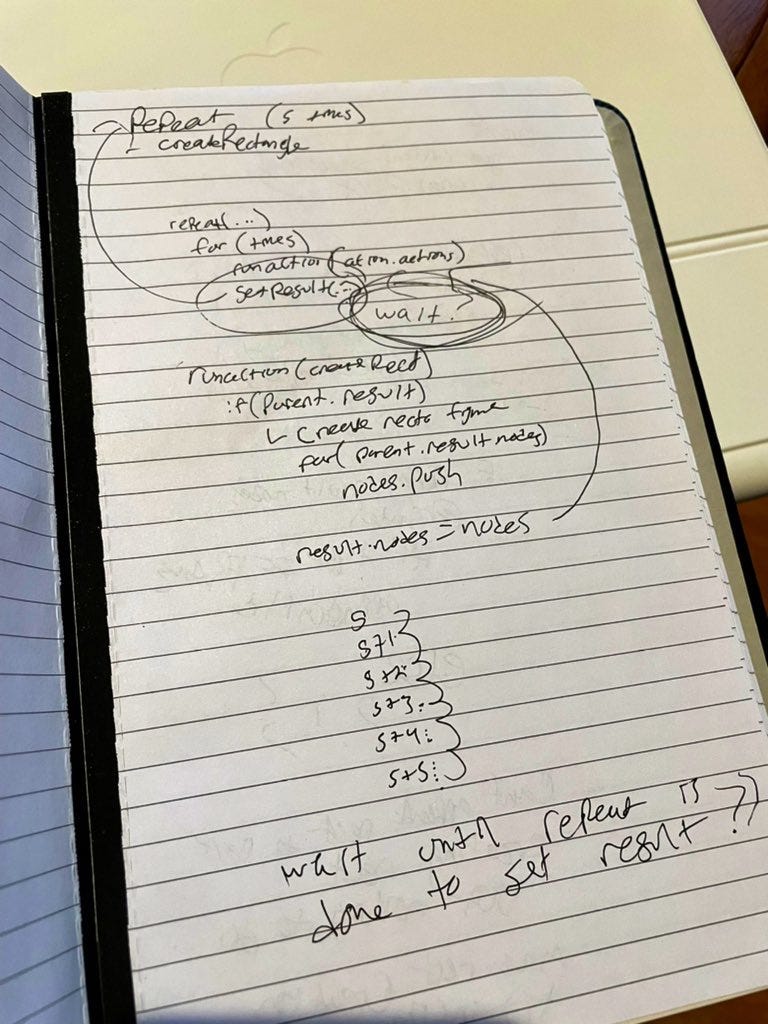 Repeat (5 times)
- createRectangle
repeat(...)
for (times)
runaction (action.actions)
setResult(...
wait?
runaction (createRect)
if (parent.result)
↳ create rect frame
for( parent.result.nodes)
nodes.push
result.nodes = nodes
S
S+1.
S+2:
S+3:
S+4:
S+5:
wait until repeat is
done to set result??